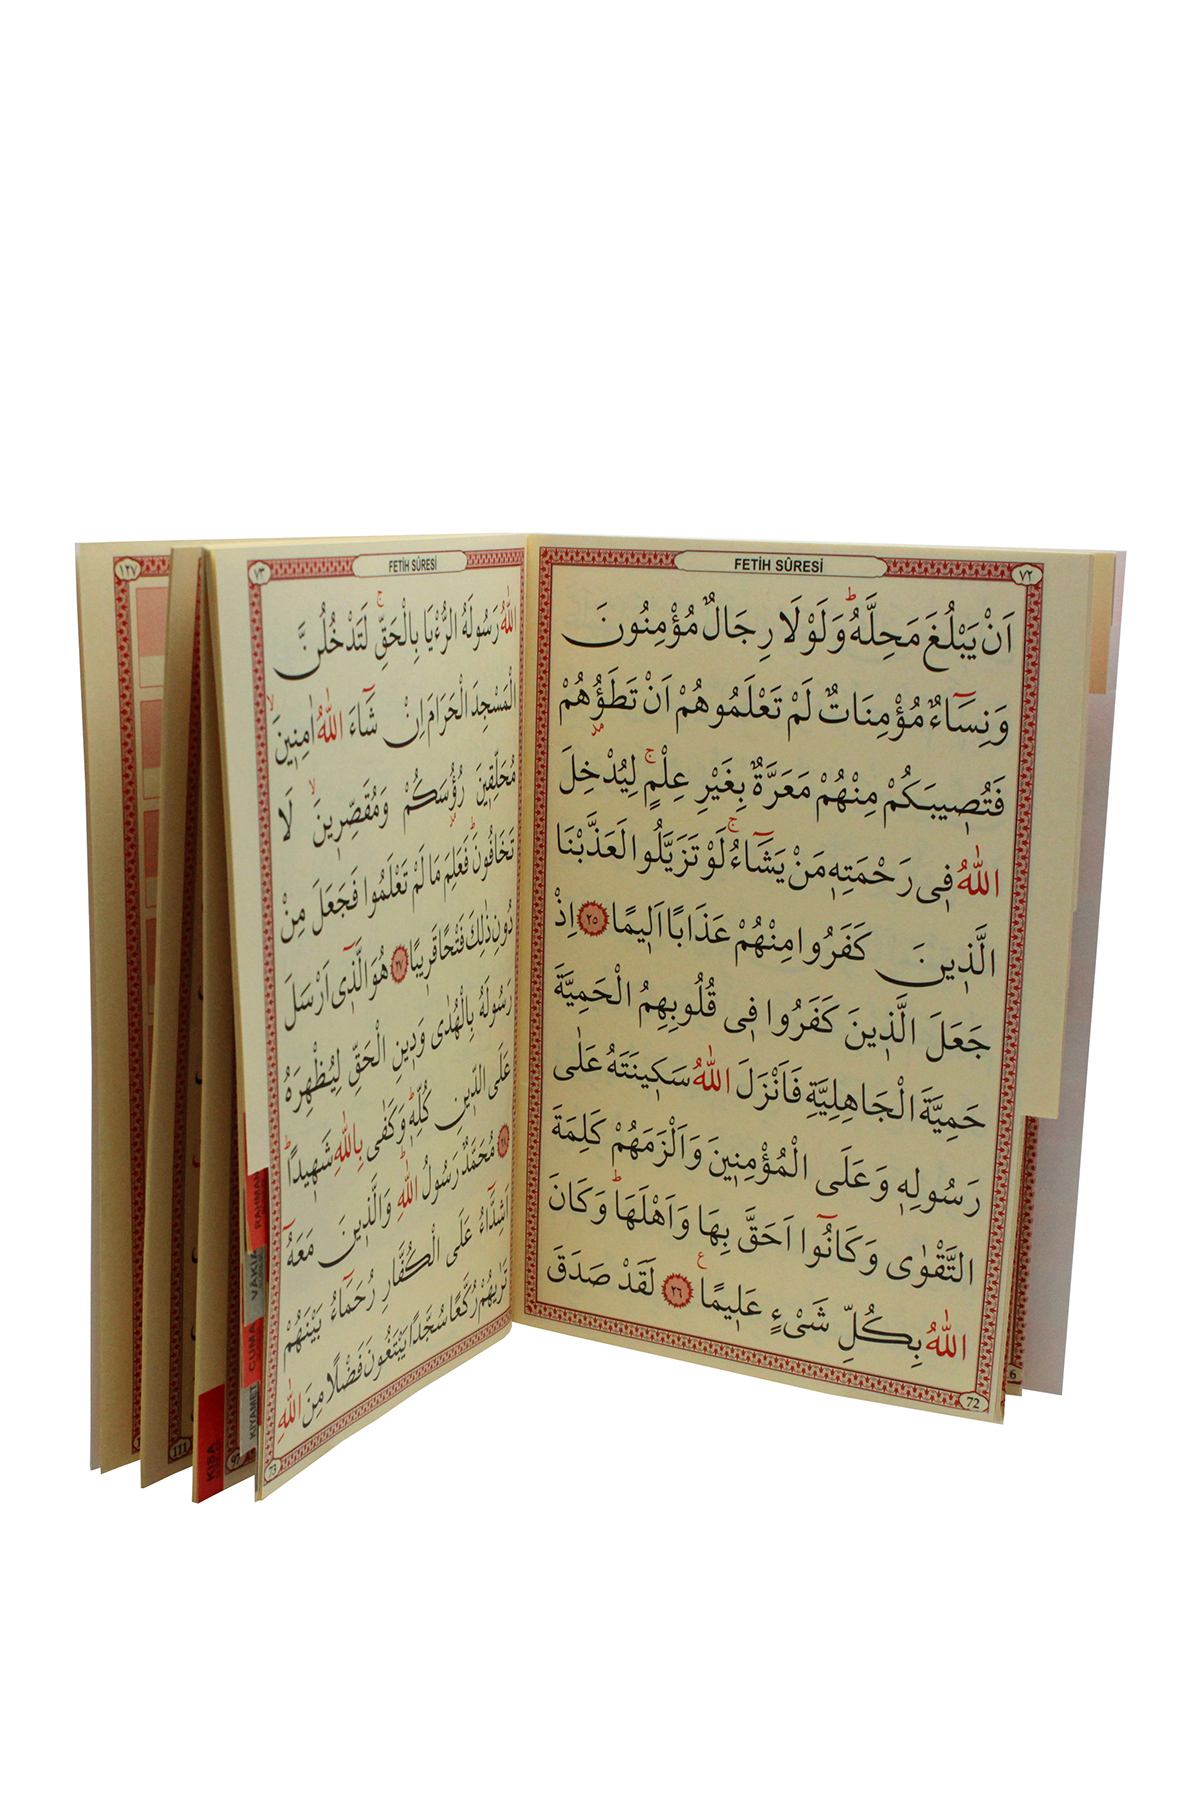 FETİH SÛRESİ
٧٢
اَنْ يَبْلُغَ مَحِلَّهُۜ وَلَوْلَا رِجَالٌ مُؤْمِنُونَ
وَنِسَٓاءٌ مُؤْمِنَاتٌ لَمْ تَعْلَمُوهُمْ اَنْ تَطَؤُ۫هُمْ
فَتُص۪يبَكُمْ مِنْهُمْ مَعَرَّةٌ بِغَيْرِ عِلْمٍۚ لِيُدْخِلَ
اللّٰهُ ف۪ي رَحْمَتِه۪ مَنْ يَشَٓاءُۚ لَوْ تَزَيَّلُوا لَعَذَّبْنَا
الَّذ۪ينَ كَفَرُوا مِنْهُمْ عَذَابًا اَل۪يمًا ٢٥ اِذْ
جَعَلَ الَّذ۪ينَ كَفَرُوا ف۪ي قُلُوبِهِمُ الْحَمِيَّةَ
حَمِيَّةَ الْجَاهِلِيَّةِ فَاَنْزَلَ اللّٰهُ سَك۪ينَتَهُ عَلٰى
رَسُولِه۪ وَعَلَى الْمُؤْمِن۪ينَ وَاَلْزَمَهُمْ كَلِمَةَ
التَّقْوٰى وَكَانُٓوا اَحَقَّ بِهَا وَاَهْلَهَاۜ وَكَانَ
اللّٰهُ بِكُلِّ شَيْءٍ عَل۪يمًا۟ ٢٦ لَقَدْ صَدَقَ
72
FETİH SÛRESİ
٧٣
اللّٰهُ رَسُولَهُ الرُّءْيَا بِالْحَقِّۚ لَتَدْخُلُنَّ
الْمَسْجِدَ الْحَرَامَ اِنْ شَٓاءَ اللّٰهُ اٰمِن۪ينَۙ
مُحَلِّق۪ينَ رُؤُ۫سَكُمْ وَمُقَصِّر۪ينَۙ لَا
تَخَافُونَۜ فَعَلِمَ مَا لَمْ تَعْلَمُوا فَجَعَلَ مِنْ
دُونِ ذٰلِكَ فَتْحًا قَر۪يبًا ٢٧ هُوَ الَّذ۪ٓي اَرْسَلَ
رَسُولَهُ بِالْهُدٰى وَد۪ينِ الْحَقِّ لِيُظْهِرَهُ
عَلَى الدّ۪ينِ كُلِّه۪ۜ وَكَفٰى بِاللّٰهِ شَه۪يدًاۜ
٢٨ مُحَمَّدٌ رَسُولُ اللّٰهِۜ وَالَّذ۪ينَ مَعَهُٓ
اَشِدَّٓاءُ عَلَى الْكُفَّارِ رُحَمَٓاءُ بَيْنَهُمْ
تَرٰيهُمْ رُكَّعًا سُجَّدًا يَبْتَغُونَ فَضْلًا مِنَ اللّٰهِ
73
RAHMAN
VÂKIA
CUMA
KIYAMET
KISA
97
111
١٢٧